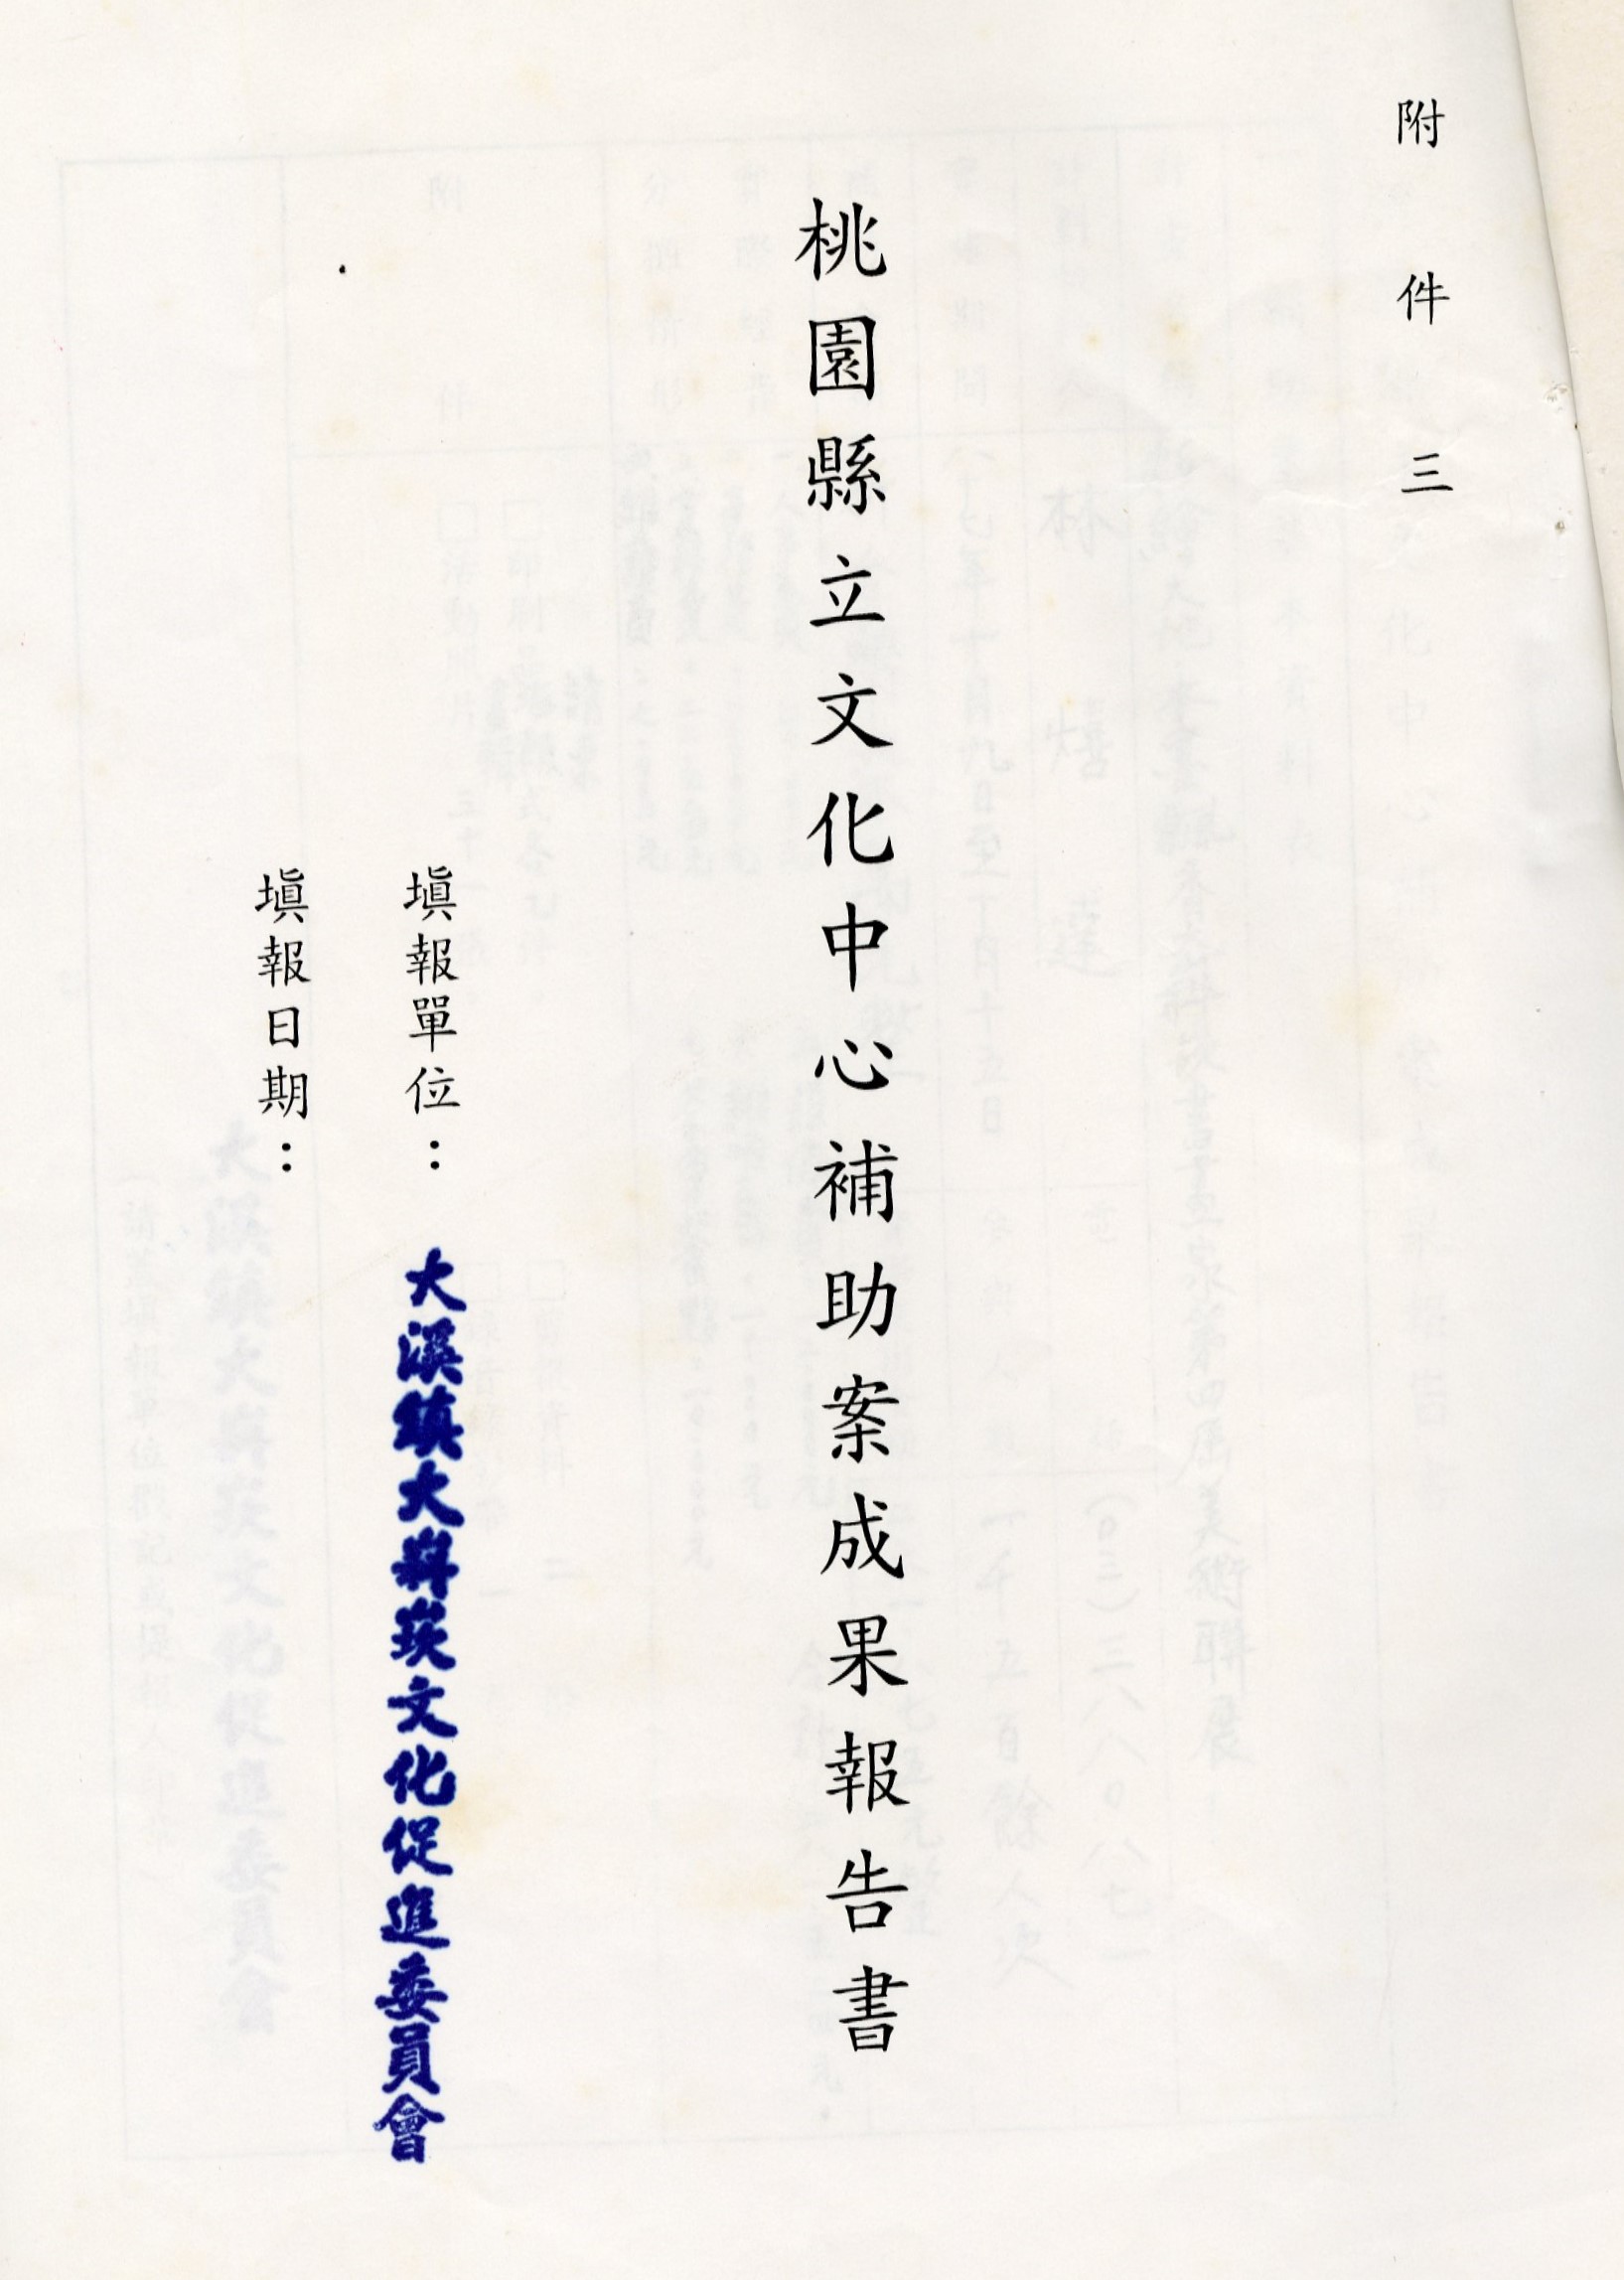 附件三
桃園縣立文化中心補助案成果報告書
填報單位：大溪鎮大嵙崁文化促進委員會
填報日期：